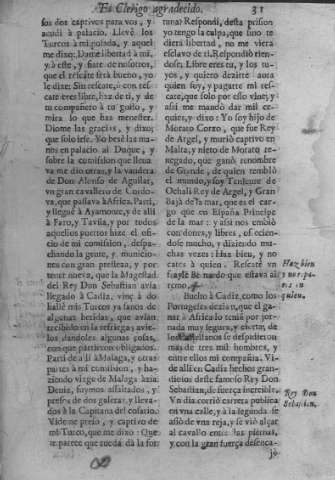 El Clerigo agradecido. 31
los dos captivos para vos, y
acudi à palacio. Llevè los
Turcos à mi posada, y aquel
me dixo; Dame libertad à mi,
y à este, y fiate de nosotros,
que el rescate serà bueno, yo
le dixe; Sin rescate, ò con res-
cate eres libre, haz de ti, y de
tu compañero à tu gusto, y
mira lo que has menester.
Diome las gracias, y dixo;
que solo irse. Yo besè las ma-
nos en palacio al Duque, y
sobre la comission que lleua
va me dio otras, y la vandera
de Don Alonso de Aguilar,
vn gran cavallero de Cordo-
va, que passava à Africa. Parti,
y lleguè à Ayamonte, y de alli
à Faro, y Tavila, y por todos
aquellos puertos hize el ofi-
cio de mi comission, despa-
chando la gente, y municio-
nes con gran presteza, y por
tener nueva, que la Magestad
del Rey Don Sebastian avia
llegado à Cadiz, vine à do
hallè mis Turcos ya sanos de
algunas heridas, que avian
recebido en la refriega; avie
los dandoles algunas cosas,
con que partieron obligados.
Parti de alli à Malaga, y otras
partes à mi comission, y ha-
ziendo viage de Malaga àzia
Denia, fuymos assaltados, y
presos de dos galeras, y lleva-
dos à la Capitana del cosario.
Vide me preso, y captivo de
mi Turco, que me dixo: Que
te parece que rueda dà la for-
tuna? Respondi, desta prision
yo tengo la culpa, que sino te
diera libertad, no me viera
esclavo de ti. Respondiò rien-
dose; Libre eres tu, y los tu-
yos, y quiero dezirte aora
quien soy, y pagarte mi res-
cate, que solo por esso vine, y
assi me mandò dar mil ce-
quies, y dixo: Yo soy hijo de
Morato Corzo, que fue Rey
de Argel, y muriò captivo en
Malta, y nieto de Morato re-
negado, que ganò renombre
de Grande, de quien temblò
el mundo, y soy Teniente de
Ochali Rey de Argel, y Gran
Baxà de la mar, que es el car-
go que en España Principe
de la mar: y assi nos embiò
con dones, y libres, ofrecien-
dose mucho, y diziendo mu-
chas vezes: Haz bien, y no
cates à quien. Rescatè vn
frayle Bernardo que estava al
remo.
Haz bien
y no
quien.
Bueltò à Cadiz, como los
Portugueses dezian, que el ga-
nar à Africa lo tenià por jor-
nada muy segura, y cierta, de
Castellanos se despidieron
mas de tres mil hombres, y
entre ellos mi compañia. Vi-
de alli en Cadiz hechos gran-
diosos deste famoso Rey Don
Sebastian, de fuerça increible.
Vn dia corriò carrera publica
en vna calle, y à la segunda se
asiò de vna reja, y se viò alçar
al cavallo entre las piernas,
y con la gran fuerça desenca-
Rey Don
Sebastian.
jò